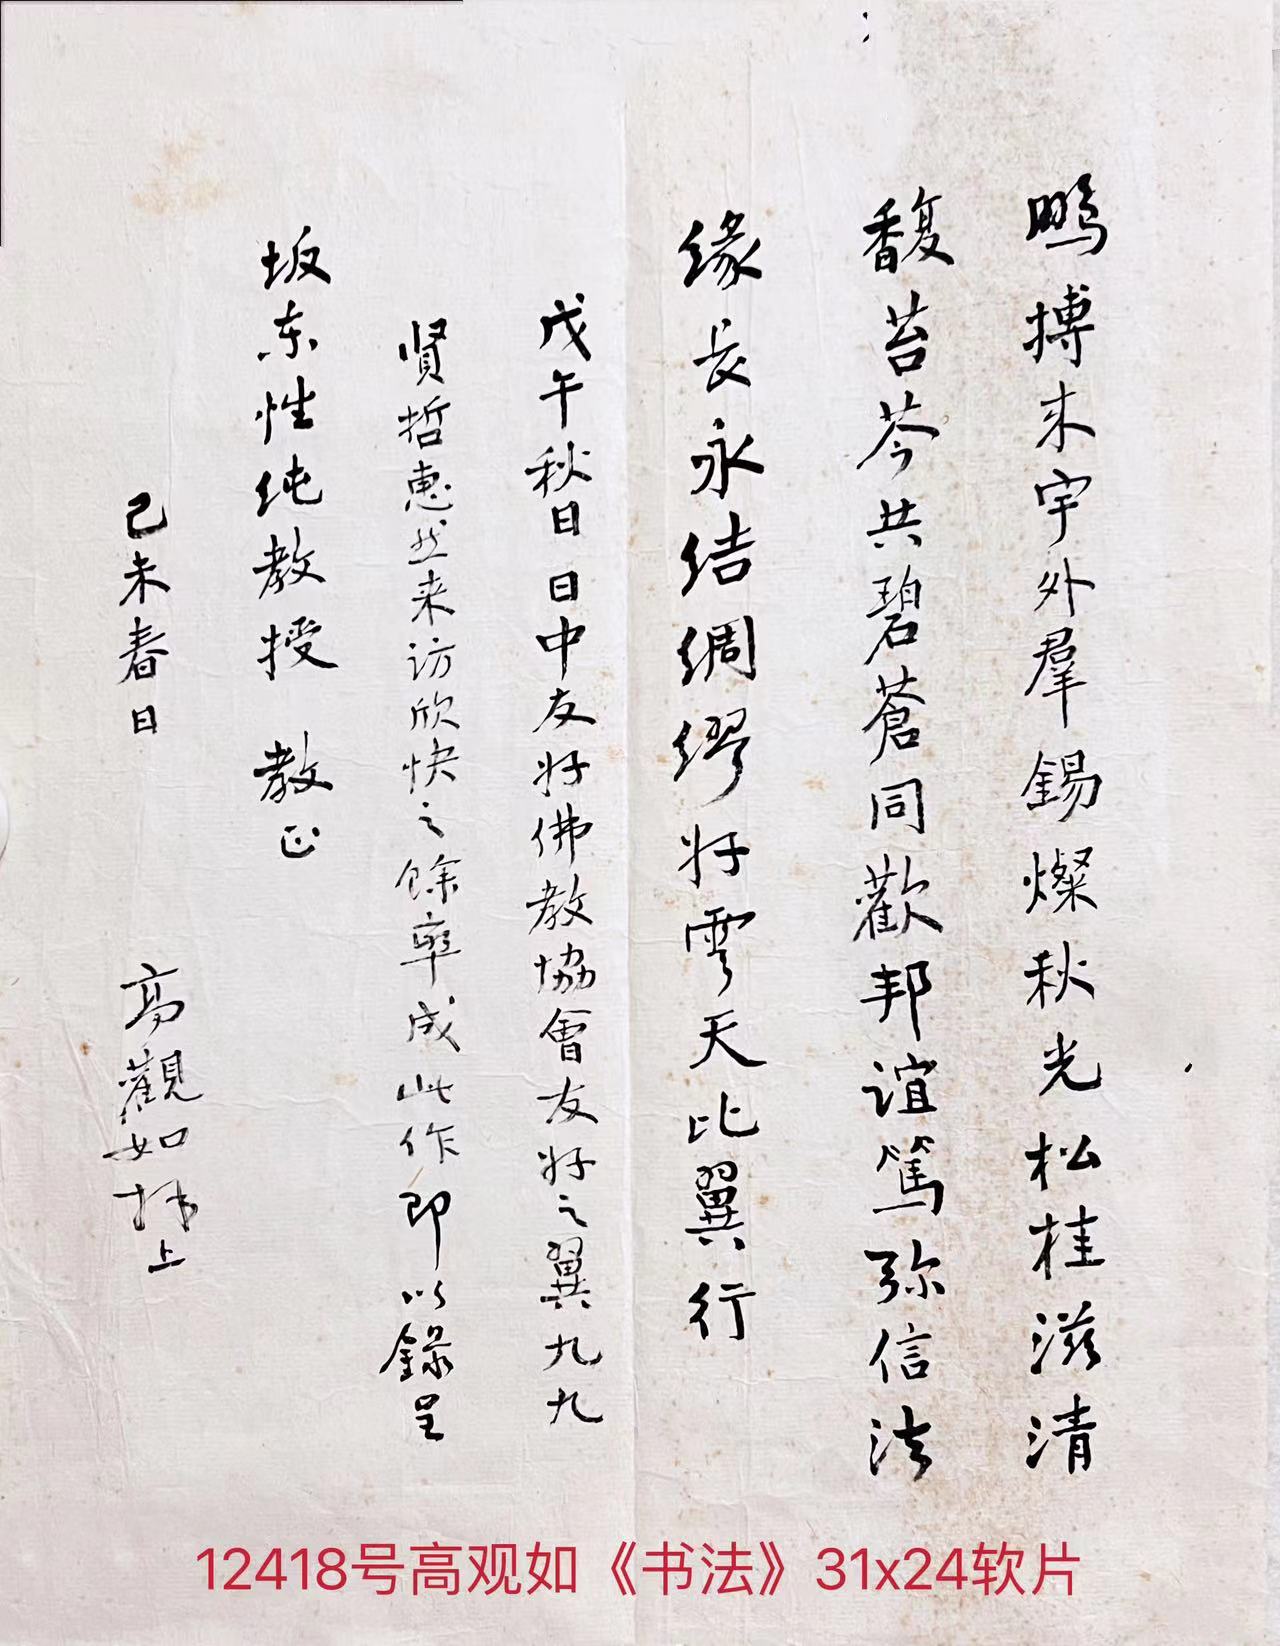 鹏搏来宇外羣錫燦秋光松桂滋清
馥苔芩共碧蒼同歡邦谊篤弥信法
缘長永结绸缪好雲天比翼行
戊午秋日日中友好佛教協會友好之翼九九
贤哲惠然来访欣快之餘率成此作即以録呈
坂东性纯教授 教正
己未春日 高觀如拜上
12418号高观如《书法》31x24软片